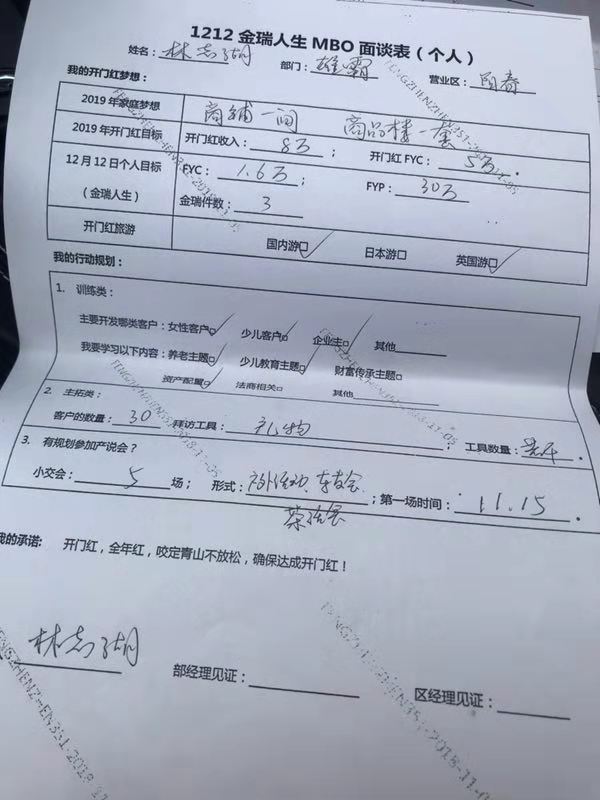 1212金瑞人生MBO面谈表（个人）
姓名：林志瑚 部门：雄霸 营业区：阳春
我的开门红梦想：
2019年家庭梦想 商铺一间 商品楼一套
2019年开门红目标 开门红收入：8万； 开门红FYC：5万。
12月12日个人目标 FYC：1.6万； FYP：30万
（金瑞人生） 金瑞件数：3
开门红旅游 国内游☑ 日本游□ 英国游☑
我的行动规划：
1. 训练类：
主要开发哪类客户：女性客户☑ 少儿客户☑ 企业主☑ 其他
我要学习以下内容：养老主题□ 少儿教育主题☑ 财富传承主题□
资产配置☑ 法商相关□ 其他
2. 主拓类：
客户的数量：30 拜访工具：礼物； 工具数量：
3. 有规划参加产说会？
小交会：5场； 形式：户外活动、车友会； 第一场时间：11.15。
茶话会
我的承诺： 开门红，全年红，咬定青山不放松，确保达成开门红！
林志瑚 部经理见证： 区经理见证：
FENGZHENZHEN351-2018-11-05